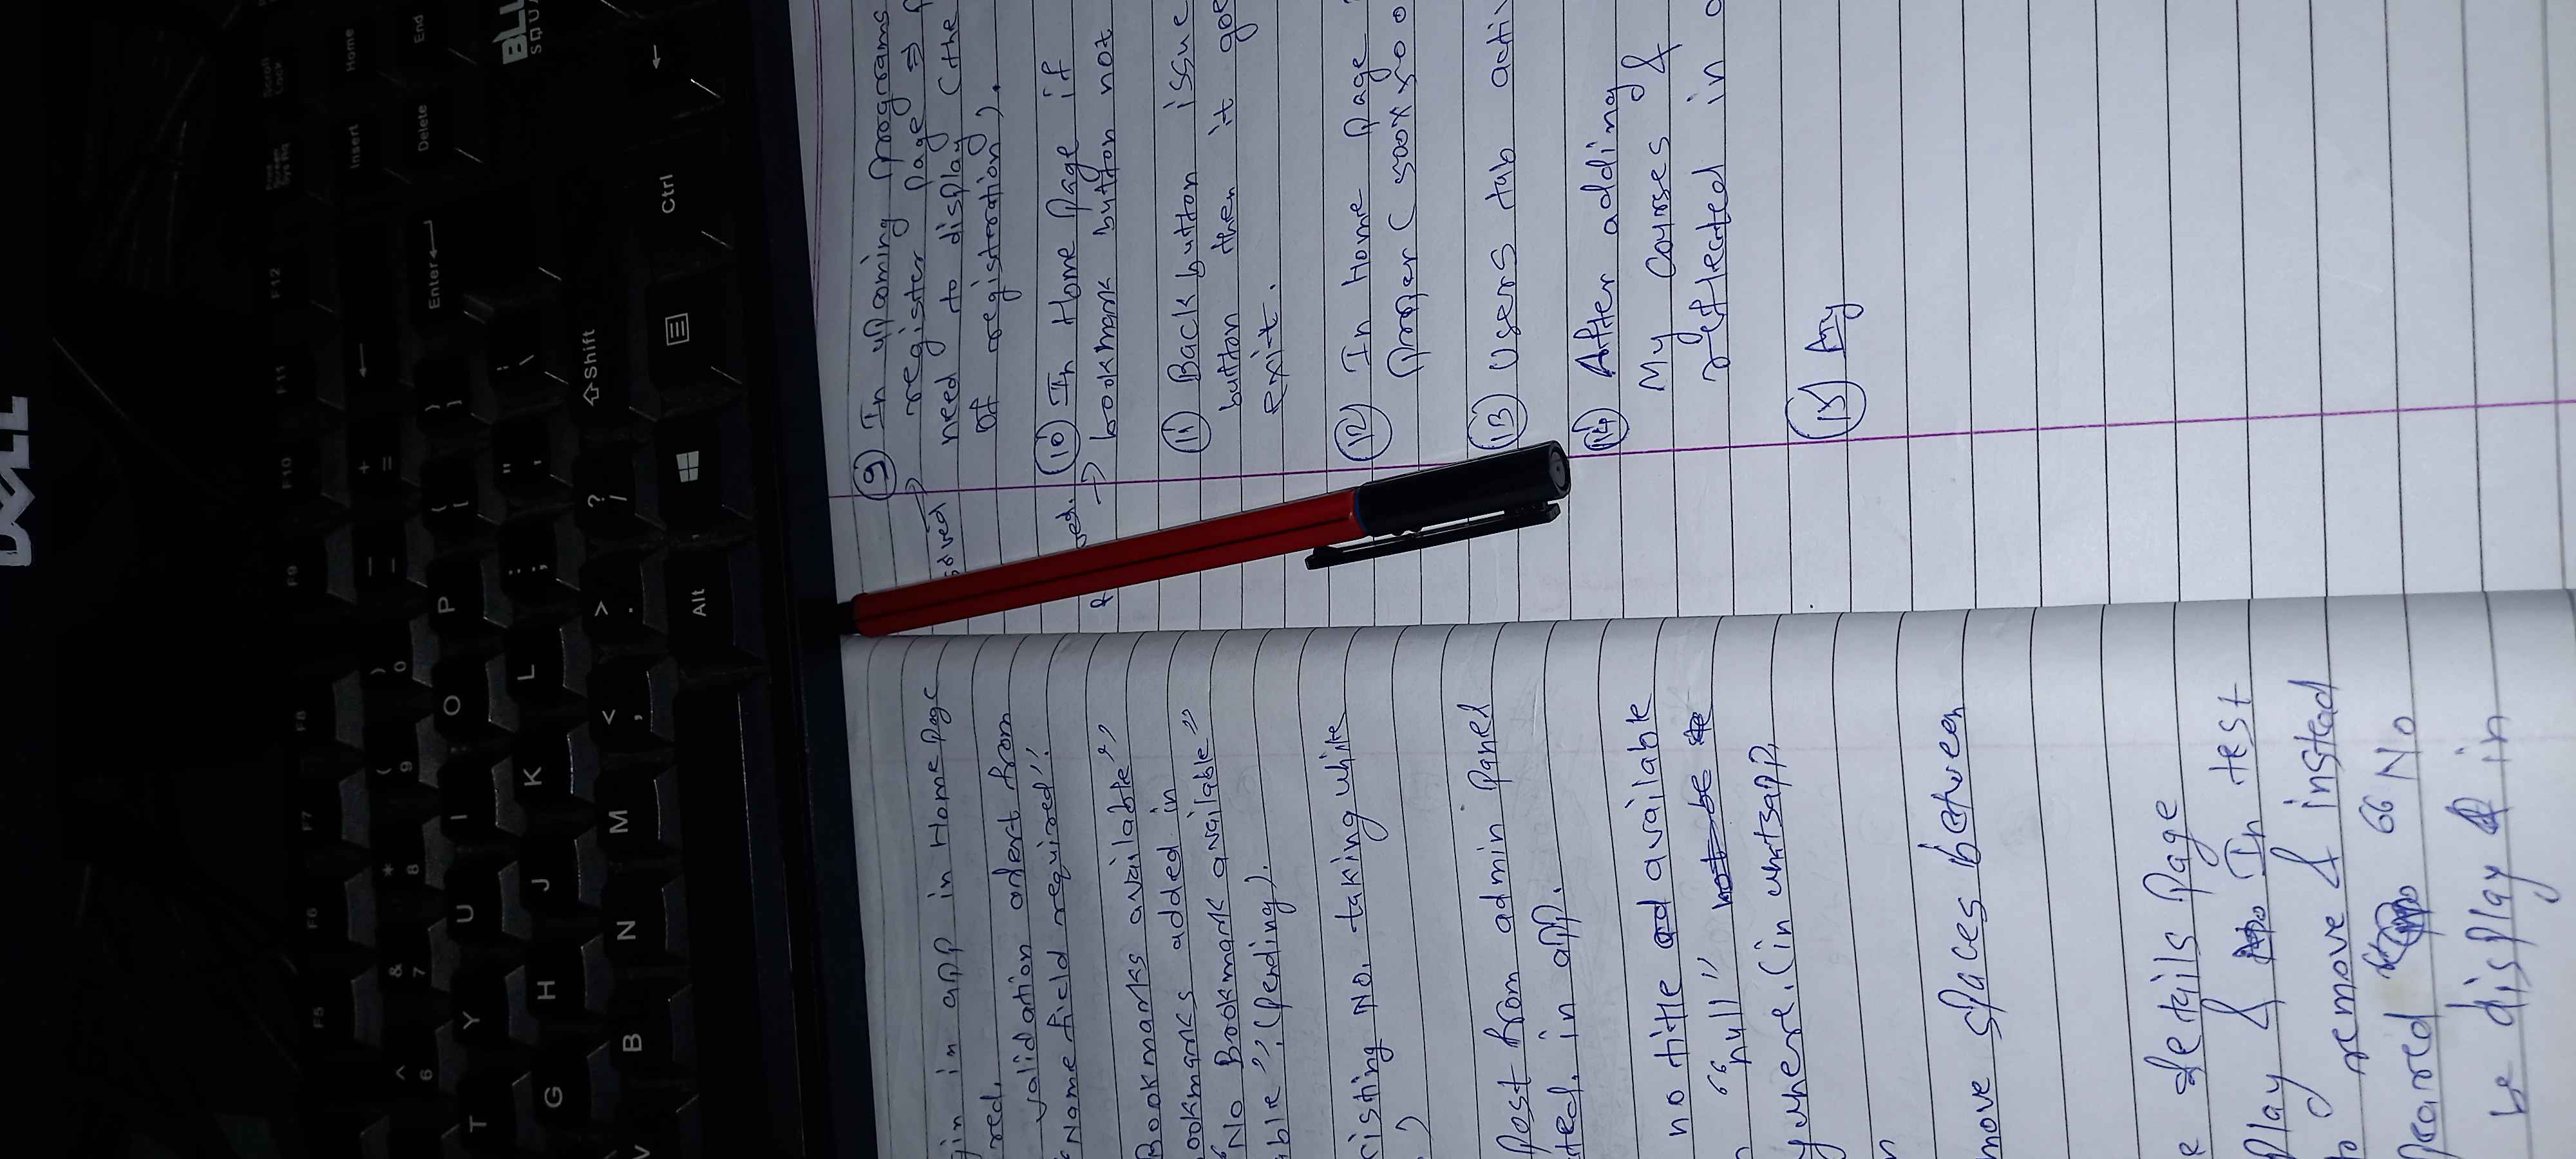 DELL
F5 F6 F7 F8 F9 F10 F11 F12 Print Screen Sys Rq Scroll Lock
^ 6 & 7 * 8 ( 9 ) 0 — - + = ← Insert Home
T Y U I O P { [ } ] Enter Delete End
G H J K L : ; " ' \ BLU
SQUA
V B N M < , > . ? / Shift
Alt Ctrl ←
gin in app in Home page
red.
validation alert from
"Name field required".
Bookmarks available"
ookmarks added in
"No Bookmark available"
able". (Pending).
xisting No. taking white
.)
Post from admin Panel
ted. in app.
no title available
"null"
ywhere. (in whatsapp,
n
move spaces between
e details Page
Play & In test
to remove & instead
peared "No
be display & in
9 In upcoming programs
register Page ⇒
solved → need to display (the
of registeration).
10 In Home Page if
→ bookmark button not
11 Back button issue
button then it goe
exit.
12 In Home Page
Proper (500x500
13 Users tab activ
14 After adding
My Courses &
reflected in a
15